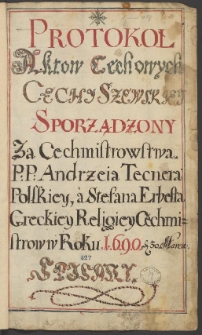 PROTOKOŁ
Aktow Cechowych
CECHU SZEWSKIEGO
SPORZĄDZONY
Za Cechmistrowstwa
P.P. Andrzeia Tecnera
Polskiey, a Stefana Erbesta
Greckiey Religiey Cechmi-
strow w Roku 1690
SPISANY.